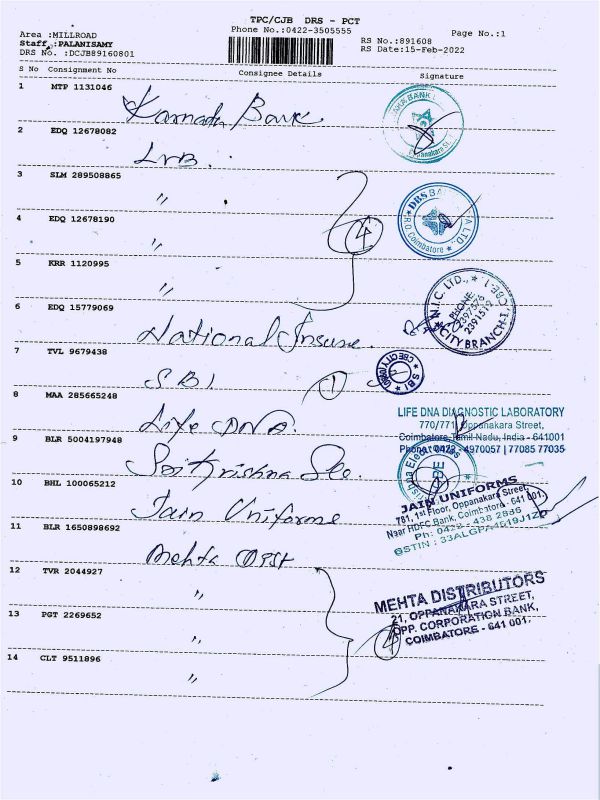 TPC/CJB DRS - PCT
Area :MILLROAD
Phone No.:0422-3505555
Page No.:1
Staff :PALANISAMY
RS No.:891608
DRS No. :DCJB89160801
RS Date:15-Feb-2022
S No Consignment No Consignee Details Signature
1 MTP 1131046
Karnataka Bank
2 EDQ 12678082
LVB.
3 SLM 289508865
"
4 EDQ 12678190
"
4
5 KRR 1120995
"
6 EDQ 15779069
National Insure.
7 TVL 9679438
SBI
1
8 MAA 285665248
Life DNA
9 BLR 5004197948
Sri Krishna Ele
10 BHL 100065212
Jain Uniforms
11 BLR 1650898692
Mehta
12 TVR 2044927
"
13 PGT 2269652
"
4
14 CLT 9511896
"
BANK
Oppanakara St.
DBS BA
A LTD.
R.O. Coimbatore
N.I.C. LTD., CBE-1.
PHONE:
2397576
2391512
CITY BRANCH-1
SBI
LIFE DNA DIAGNOSTIC LABORATORY
770/771, Oppanakara Street,
Coimbatore Tamil Nadu, India - 641001
Phone: 0422 - 4970057 | 77085 77035
JAIN UNIFORMS
781, 1st Floor, Oppanakara Street,
Near HDFC Bank, Coimbatore - 641 001.
Ph: 0422 - 438 2886
GSTIN : 33ALGPA1519J1Z
MEHTA DISTRIBUTORS
21, OPPANAKARA STREET,
OPP. CORPORATION BANK,
COIMBATORE - 641 001.